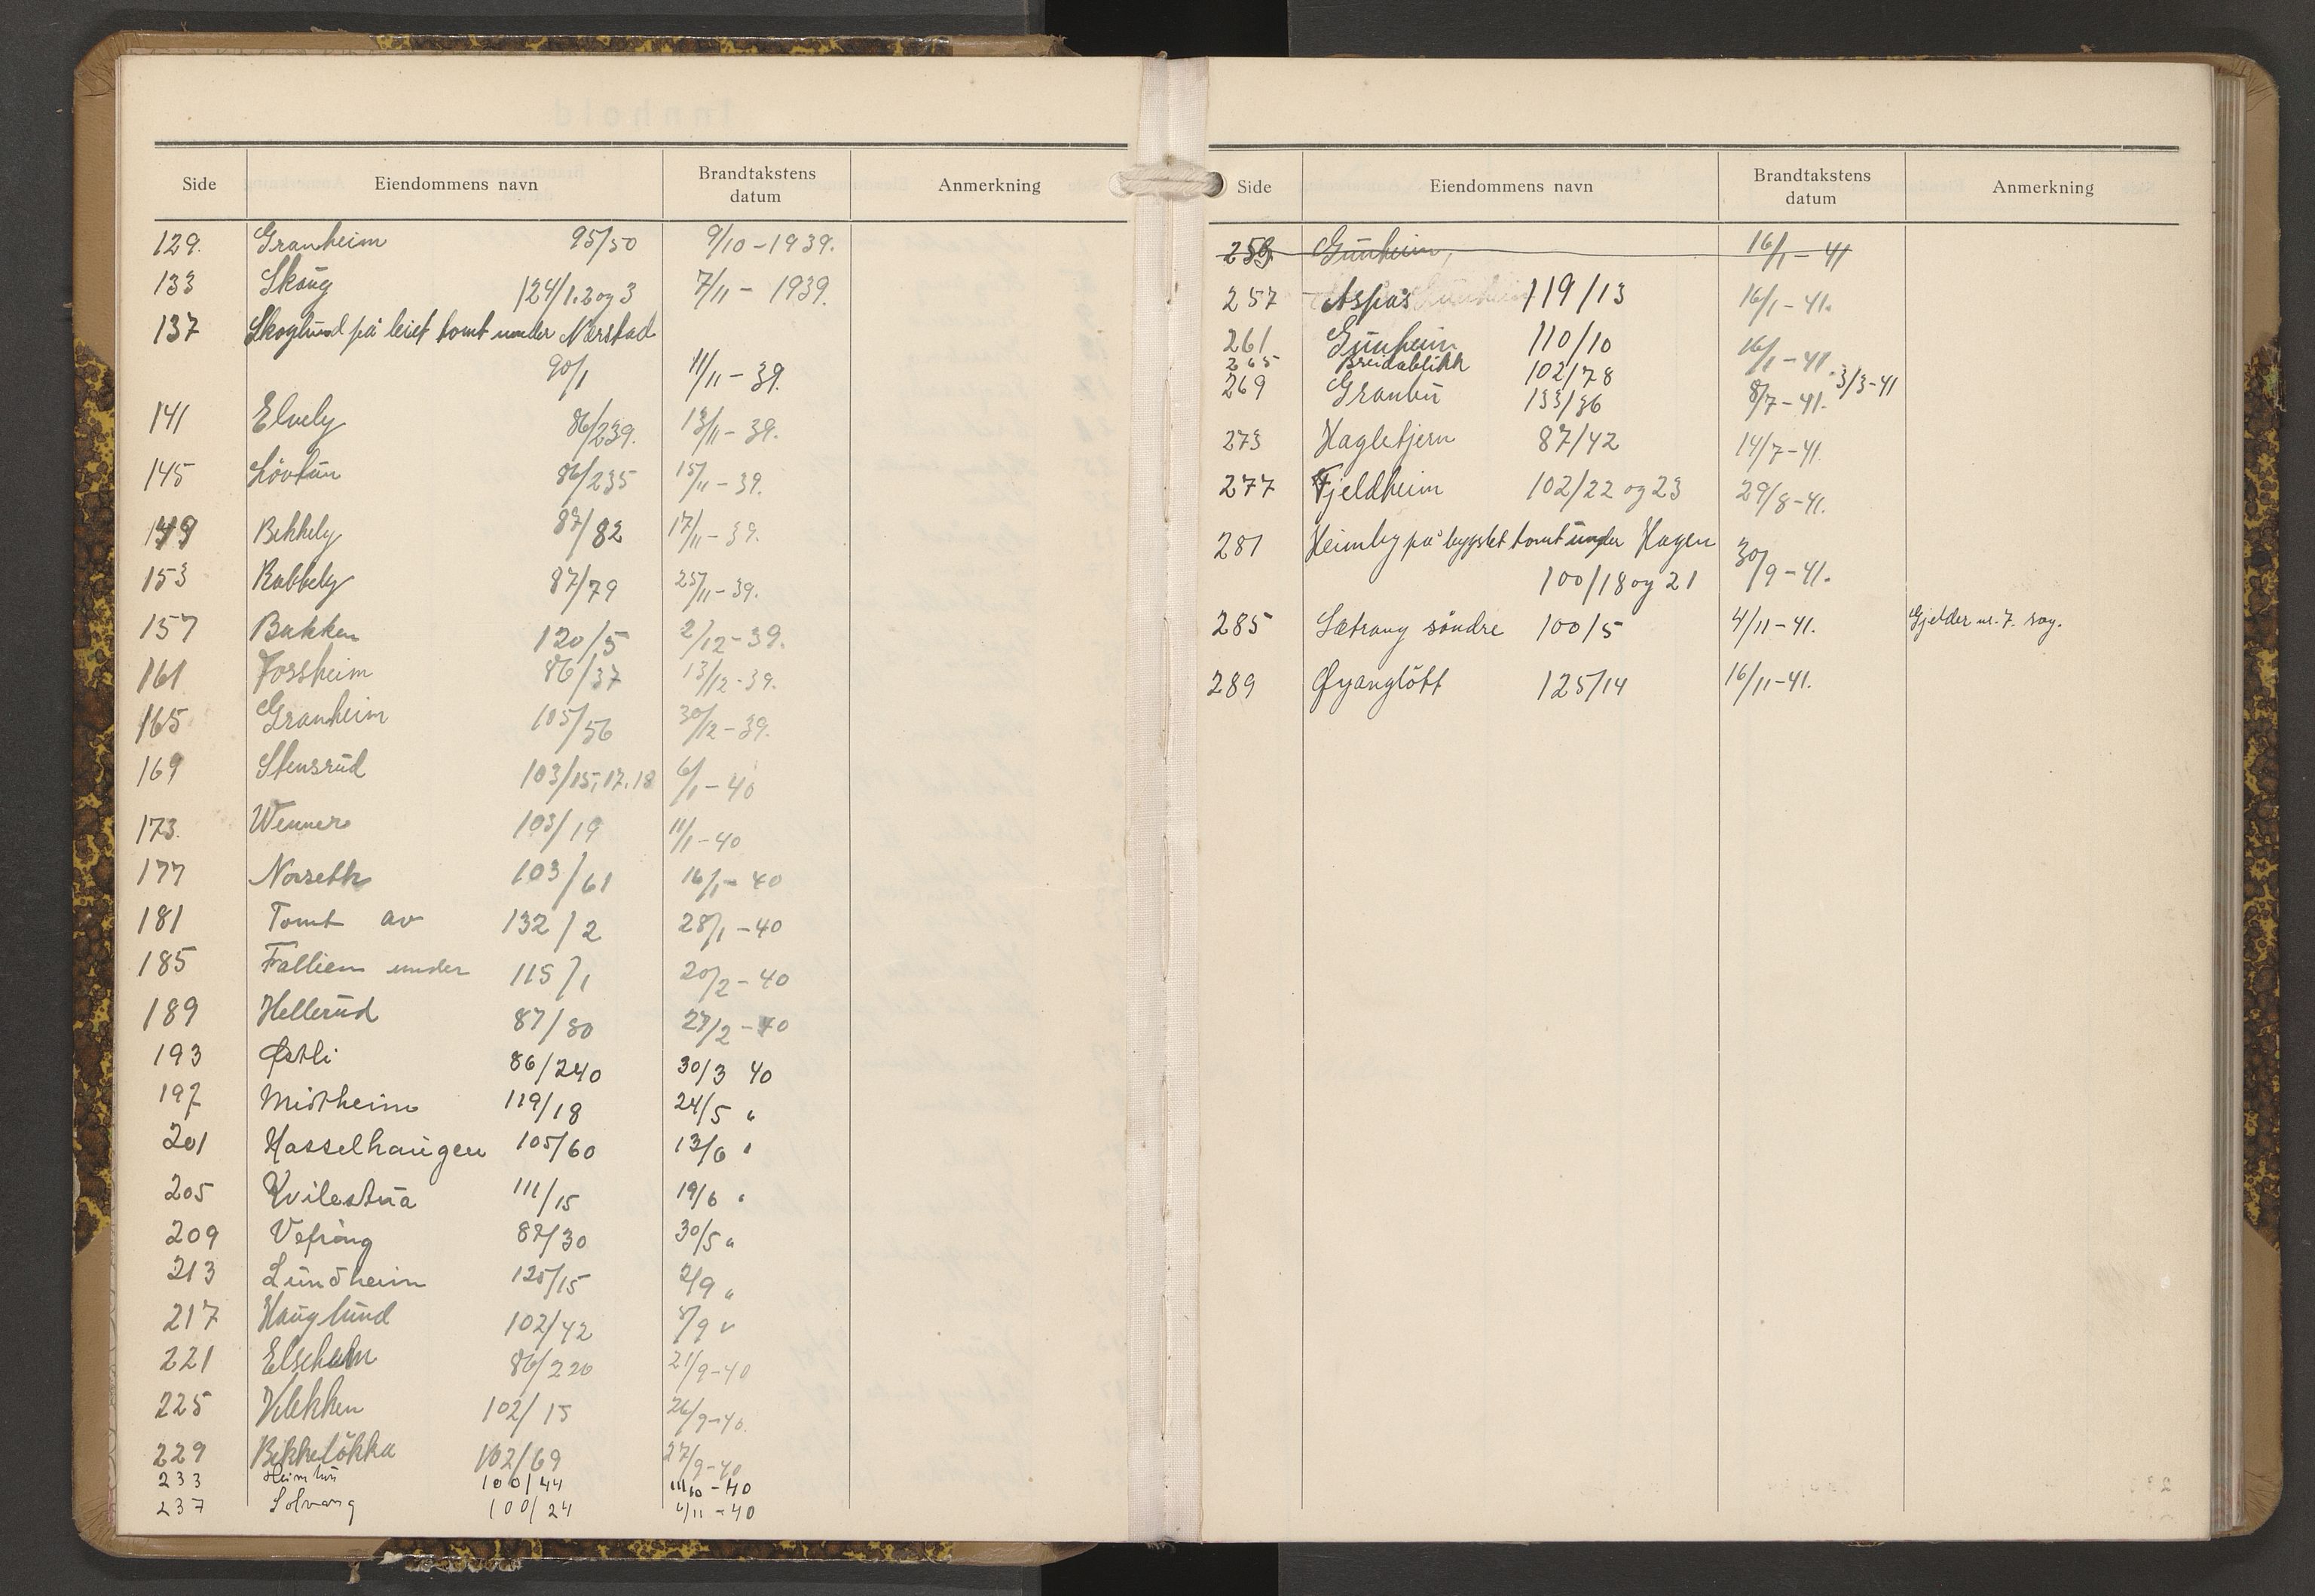 Side Eiendommens navn Brandtakstens datum Anmerkning
129. Granheim 95/50 9/10-1939.
133 Skaug 124/1.2 og 3 7/11 - 1939.
137 Skoglund på leiet tomt under Nærstad
90/1 11/11 - 39.
141 Elvely 86/239. 13/11 - 39.
145 Lövtun 86/235 15/11 - 39.
149 Bekkely 87/82 17/11 - 39.
153 Rabbely 87/79 25/11 - 39.
157 Bakken 120/5 2/12 - 39.
161 Fossheim 86/37 13/12 - 39.
165 Granheim 105/56 30/12 - 39.
169 Stensrud 103/15, 17. 18 6/1 - 40
173. Wenner 103/19 11/1 - 40
177 Norseth 103/61 16/1 - 40
181 Tomt av 132/2 28/1 - 40
185 Fallien under 115/1 20/2 - 40
189 Hellerud 87/80 27/2 - 40
193 Østli 86/240 30/3 40
197 Midtheim 119/18 24/5 "
201 Hasselhaugen 105/60 13/6 "
205 Kvilestua 111/15 19/6 "
209 87/30 30/5 "
213 Lundheim 125/15 2/9 "
217 Hauglund 102/42 8/9 "
221 86/220 21/9-40
225 Klekken 102/15 26/9-40.
229 Bekkelökka 102/69 27/9-40
233 100/44 11/10 - 40
237 Solvang 100/24 6/11 - 40
Side Eiendommens navn Brandtakstens datum Anmerkning
259 Gunheim, 16/1 - 41
257 Aspås 119/13 16/1 - 41.
261 Gunheim 110/10 16/1 - 41.
265 Breidablikk 102/78 3/3-41
269 Granbu 133/36 8/7 - 41.
273 Hagletjern 87/42 14/7 - 41.
277 Fjeldheim 102/22 og 23 29/8-41.
281 Heimly på bygslet tomt under Hagen
100/18 og 21 30/9 - 41.
285 Sætrang söndre 100/5 4/11-41. Gjelder nr. 7. sag.
289 Øyangslött 125/14 16/11-41.